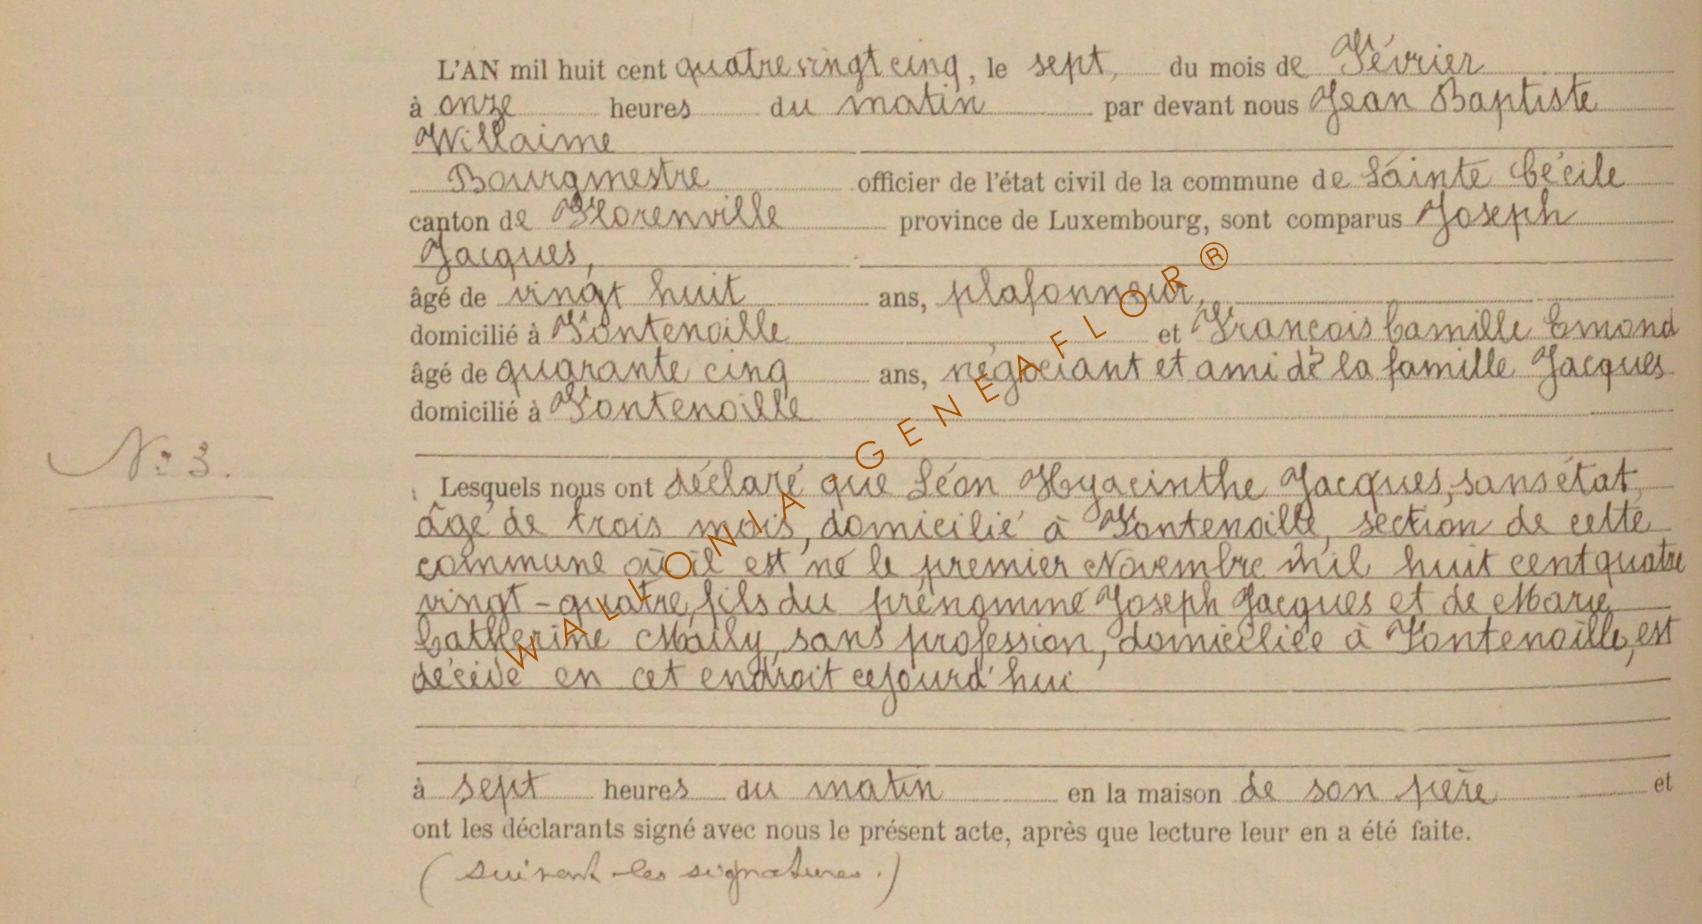 L'AN mil huit cent quatre vingt cinq, le sept, du mois de Février
à onze heures du matin par devant nous Jean Baptiste
Willaime
Bourgmestre officier de l'état civil de la commune de Sainte Cécile
canton de Florenville province de Luxembourg, sont comparus Joseph
Jacques,
âgé de vingt huit ans, plafonneur,
domicilié à Fontenoille et François Camille Emond
âgé de quarante cinq ans, négociant et ami de la famille Jacques
domicilié à Fontenoille
N° 3.
Lesquels nous ont déclaré que Léon Hyacinthe Jacques, sans état,
âgé de trois mois, domicilié à Fontenoille, section de cette
commune où il est né le premier Novembre mil huit cent quatre
vingt-quatre, fils du prénommé Joseph Jacques et de Marie
Catherine Mailly, sans profession, domiciliée à Fontenoille, est
décédé en cet endroit cejourd'hui
à sept heures du matin en la maison de son père et
ont les déclarants signé avec nous le présent acte, après que lecture leur en a été faite.
(suivent les signatures.)
WALLONIA-GENEAFLOR®